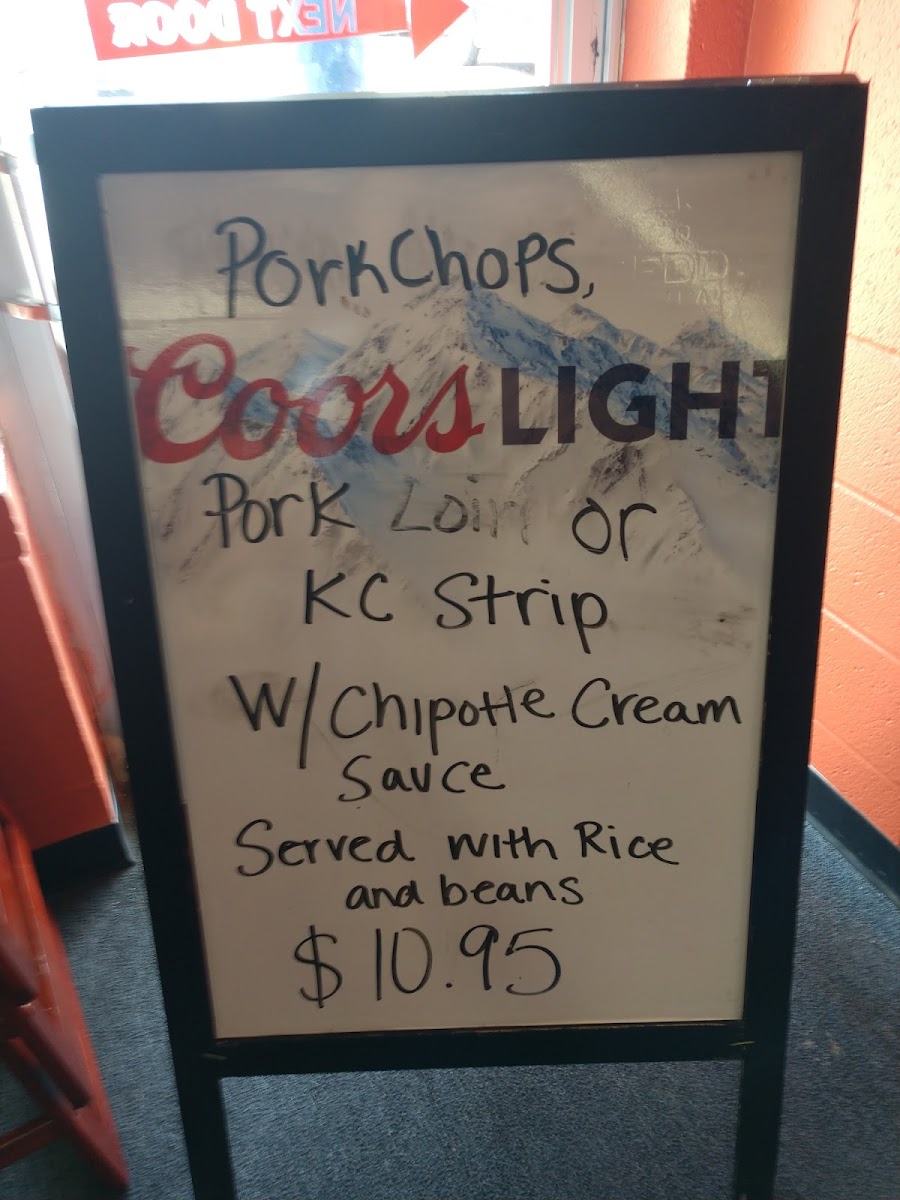 NEXT DOOR
PorkChops,
Coors LIGHT
Pork Loin or
KC Strip
W/Chipotle Cream
Sauce
Served with Rice
and beans
$10.95